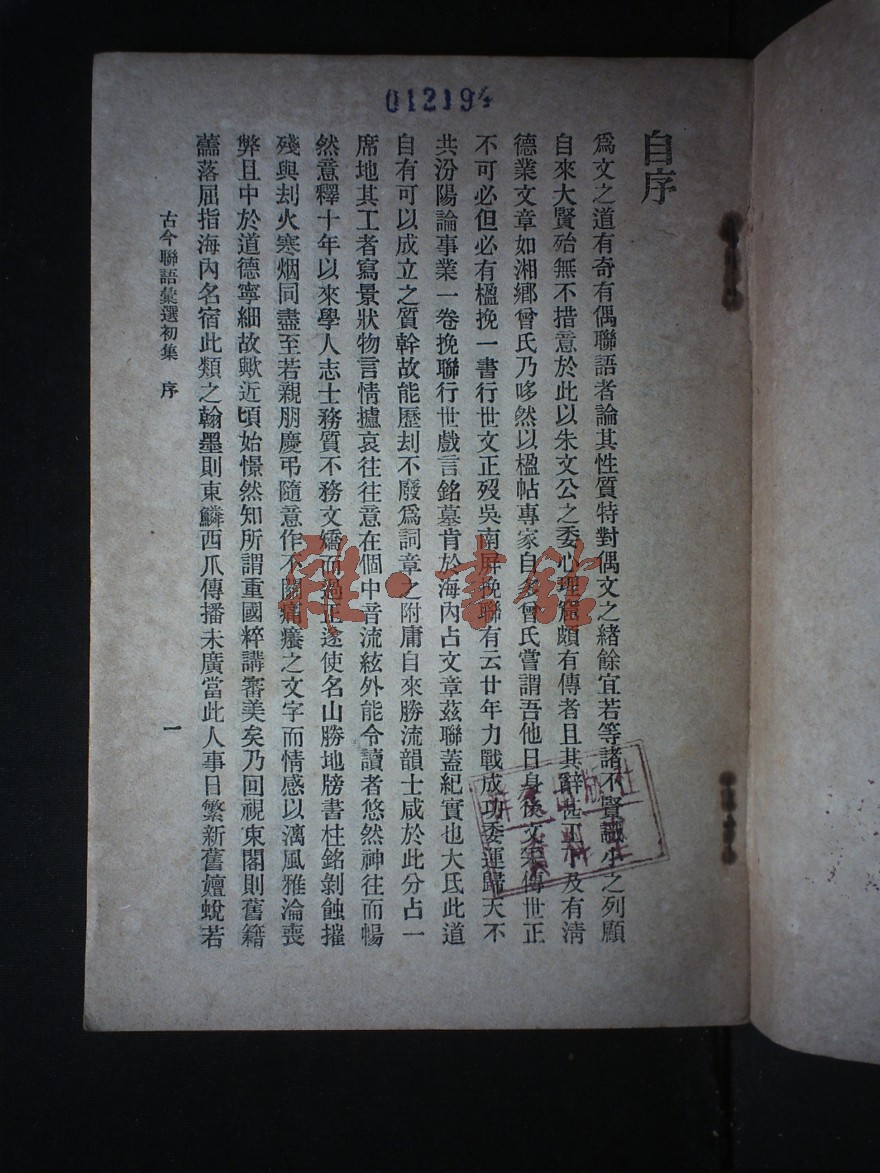 012194
自序
爲文之道有奇有偶聯語者論其性質特對偶文之緒餘宜若等諸不賢識小之列顧
自來大賢殆無不措意於此以朱文公之委心理窟頗有傳者且其辭甚工及有淸
德業文章如湘鄕曾氏乃哆然以楹帖專家自多曾氏嘗謂吾他日身後文集傳世正
不可必但必有楹挽一書行世文正歿吳南屛挽聯有云廿年力戰成功委運歸天不
共汾陽論事業一卷挽聯行世戲言銘墓肯於海內占文章茲聯蓋紀實也大氐此道
自有可以成立之質幹故能歷刦不廢爲詞章之附庸自來勝流韻士咸於此分占一
席地其工者寫景狀物言情攄哀往往意在個中音流絃外能令讀者悠然神往而暢
然意釋十年以來學人志士務質不務文矯而過正遂使名山勝地牓書柱銘剝蝕摧
殘與刦火寒烟同盡至若親朋慶弔隨意作不關痛癢之文字而情感以漓風雅淪喪
弊且中於道德寧細故歟近頃始憬然知所謂重國粹講審美矣乃回視東閣則舊籍
蠹落屈指海內名宿此類之翰墨則東鱗西爪傳播未廣當此人事日繁新舊嬗蛻若
古今聯語彙選初集 序
一
雜·書館